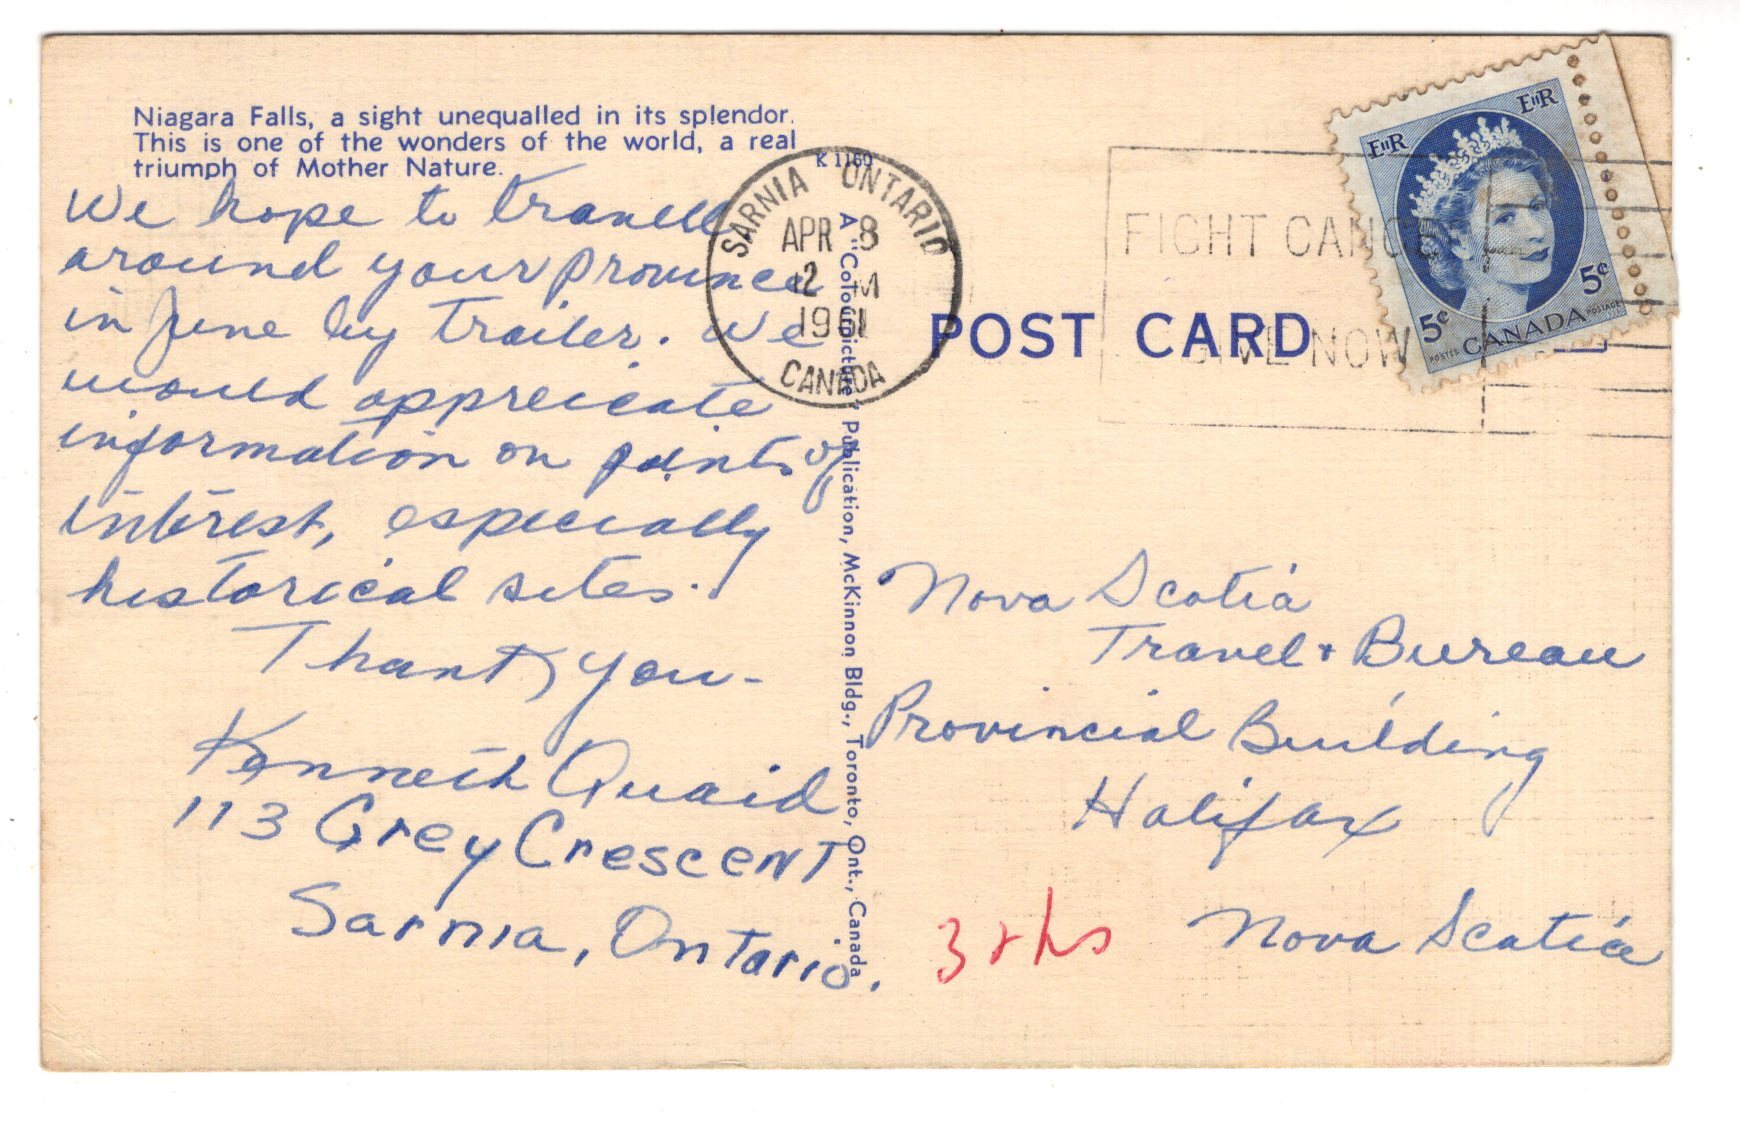 Niagara Falls, a sight unequalled in its splendor.
This is one of the wonders of the world, a real
triumph of Mother Nature.
K 1169
We hope to travell
around your province
in June by trailer. We
would appreicate
information on points of
interest, especially
historical sites.
Thank you-
Kenneth Quaid
113 Grey Crescent
Sarnia, Ontario.
A "Colourpicture" Publication, McKinnon Bldg., Toronto, Ont., Canada
SARNIA ONTARIO
APR 8
2 M
1961
CANADA
POST CARD
FIGHT CANCER
GIVE NOW
EIIR
EIIR
5¢
5¢
POSTES CANADA POSTAGE
Nova Scotia
Travel + Bureau
Provincial Building
Halifax
Nova Scotia